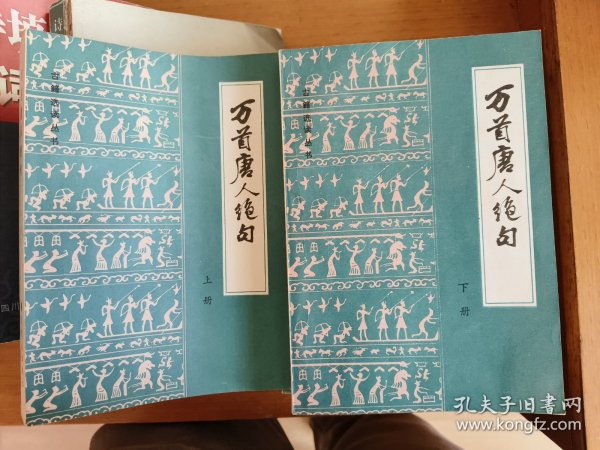 万首唐人绝句
上册
古籍选读丛书
万首唐人绝句
下册
古籍选读丛书
诗
四川
孔夫子旧書网
www.kongfz.com